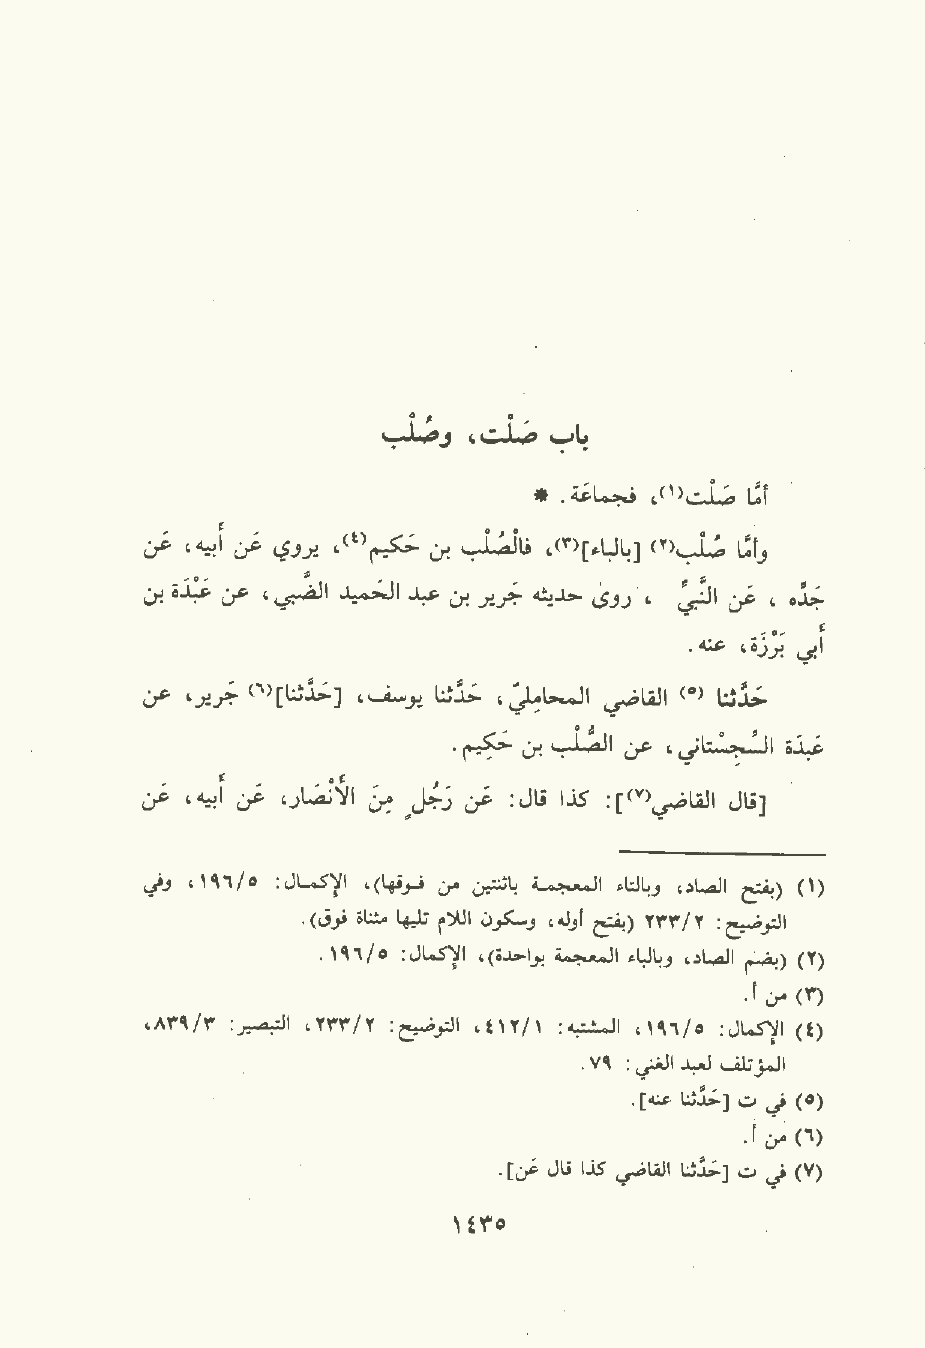 باب صَلْت ، وصُلْب
أمَّا صَلْت(١)، فجماعَة . *
وأمَّا صُلْب(٢) [بالباء](٣)، فالصُلْب بن حَكيم(٤)، يروي عَن أَبيه، عَن
جَدِّه ، عَن النَّبيِّ ، روىٰ حديثه جَرير بن عبد الحَميد الضَّبي، عن عَبْدَة بن
أَبي بَرْزَة، عنه.
حَدَّثنا (٥) القاضي المحامِليّ، حَدَّثنا يوسف، [حَدَّثنا](٦) جَرير، عن
عَبدَة السِّجِسْتاني، عن الصُّلْب بن حَكِيم.
[قال القاضي(٧)]: كذا قال: عَن رَجُلٍ مِنَ الأَنْصَار، عَن أَبيه، عَن
(١) (بفتح الصاد، وبالتاء المعجمة باثنتين من فوقها)، الإكمال: ١٩٦/٥، وفي
التوضيح: ٢٣٣/٢ (بفتح أوله، وسكون اللام تليها مثناة فوق).
(٢) (بضم الصاد، وبالباء المعجمة بواحدة)، الإكمال: ١٩٦/٥.
(٣) من أ.
(٤) الإكمال: ١٩٦/٥، المشتبه: ٤١٢/١، التوضيح: ٢٣٣/٢، التبصير: ٨٣٩/٣،
المؤتلف لعبد الغني: ٧٩.
(٥) في ت [حَدَّثنا عنه].
(٦) من أ.
(٧) في ت [حَدَّثنا القاضي كذا قال عَن].
١٤٣٥